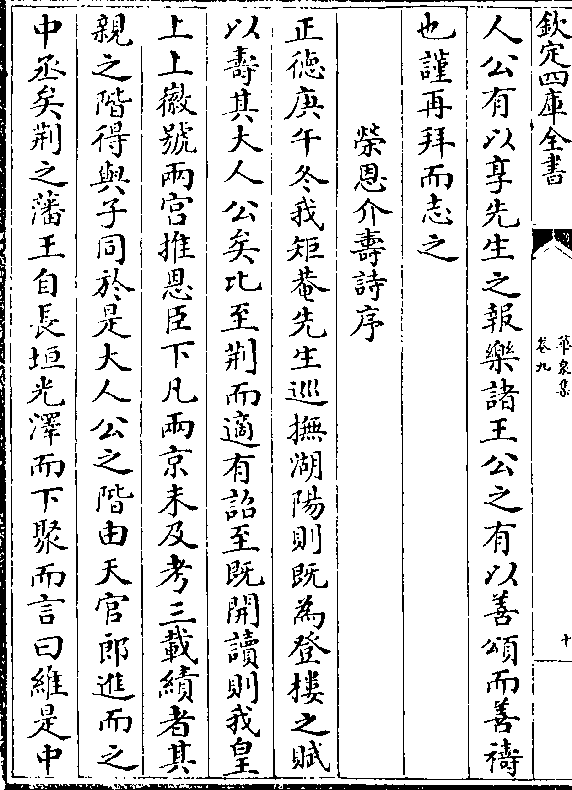 欽定四庫全書
華泉集
卷九
十
人公有以享先生之報樂諸王公之有以善頌而善禱
也謹再拜而志之
榮恩介壽詩序
正德庚午冬我矩菴先生巡撫湖陽則既為登樓之賦
以壽其大人公矣比至荆而適有詔至既開讀則我皇
上上徽號兩宫推恩臣下凡兩京未及考三載績者其
親之階得與子同於是大人公之階由天官郎進而之
中丞矣荆之藩王自長垣光澤而下聚而言曰維是中